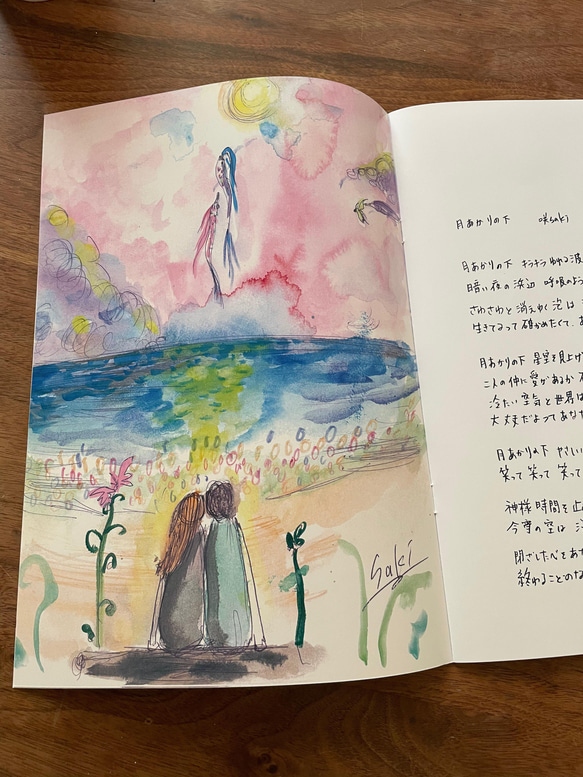 Saki
月あかりの下 咲saki
月あかりの下 キラキラゆれる波
暗い夜の浜辺 呼吸のよう
さわさわと消えゆく泡は
生きてるって確かめたくて、あ
月あかりの下 星空を見上げ
二人の仲に愛があるか
冷たい空気と世界は
大丈夫だよってあなた
月あかりの下 やさしい
笑って 笑って 笑って
神様 時間を止
今宵の空は
閉ざした心をあ
終わることのな